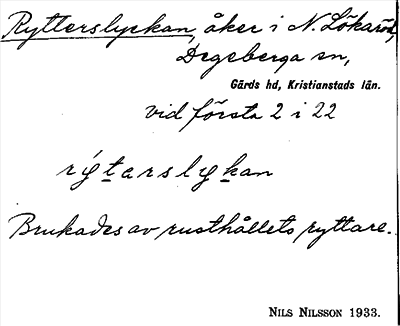 Rytterslyckan, åker i N. Lökaröd,
Degeberga sn,
Gärds hd, Kristianstads län.
vid första 2 i 22
rýtarslykan
Brukades av rusthållets ryttare.
NILS NILSSON 1933.